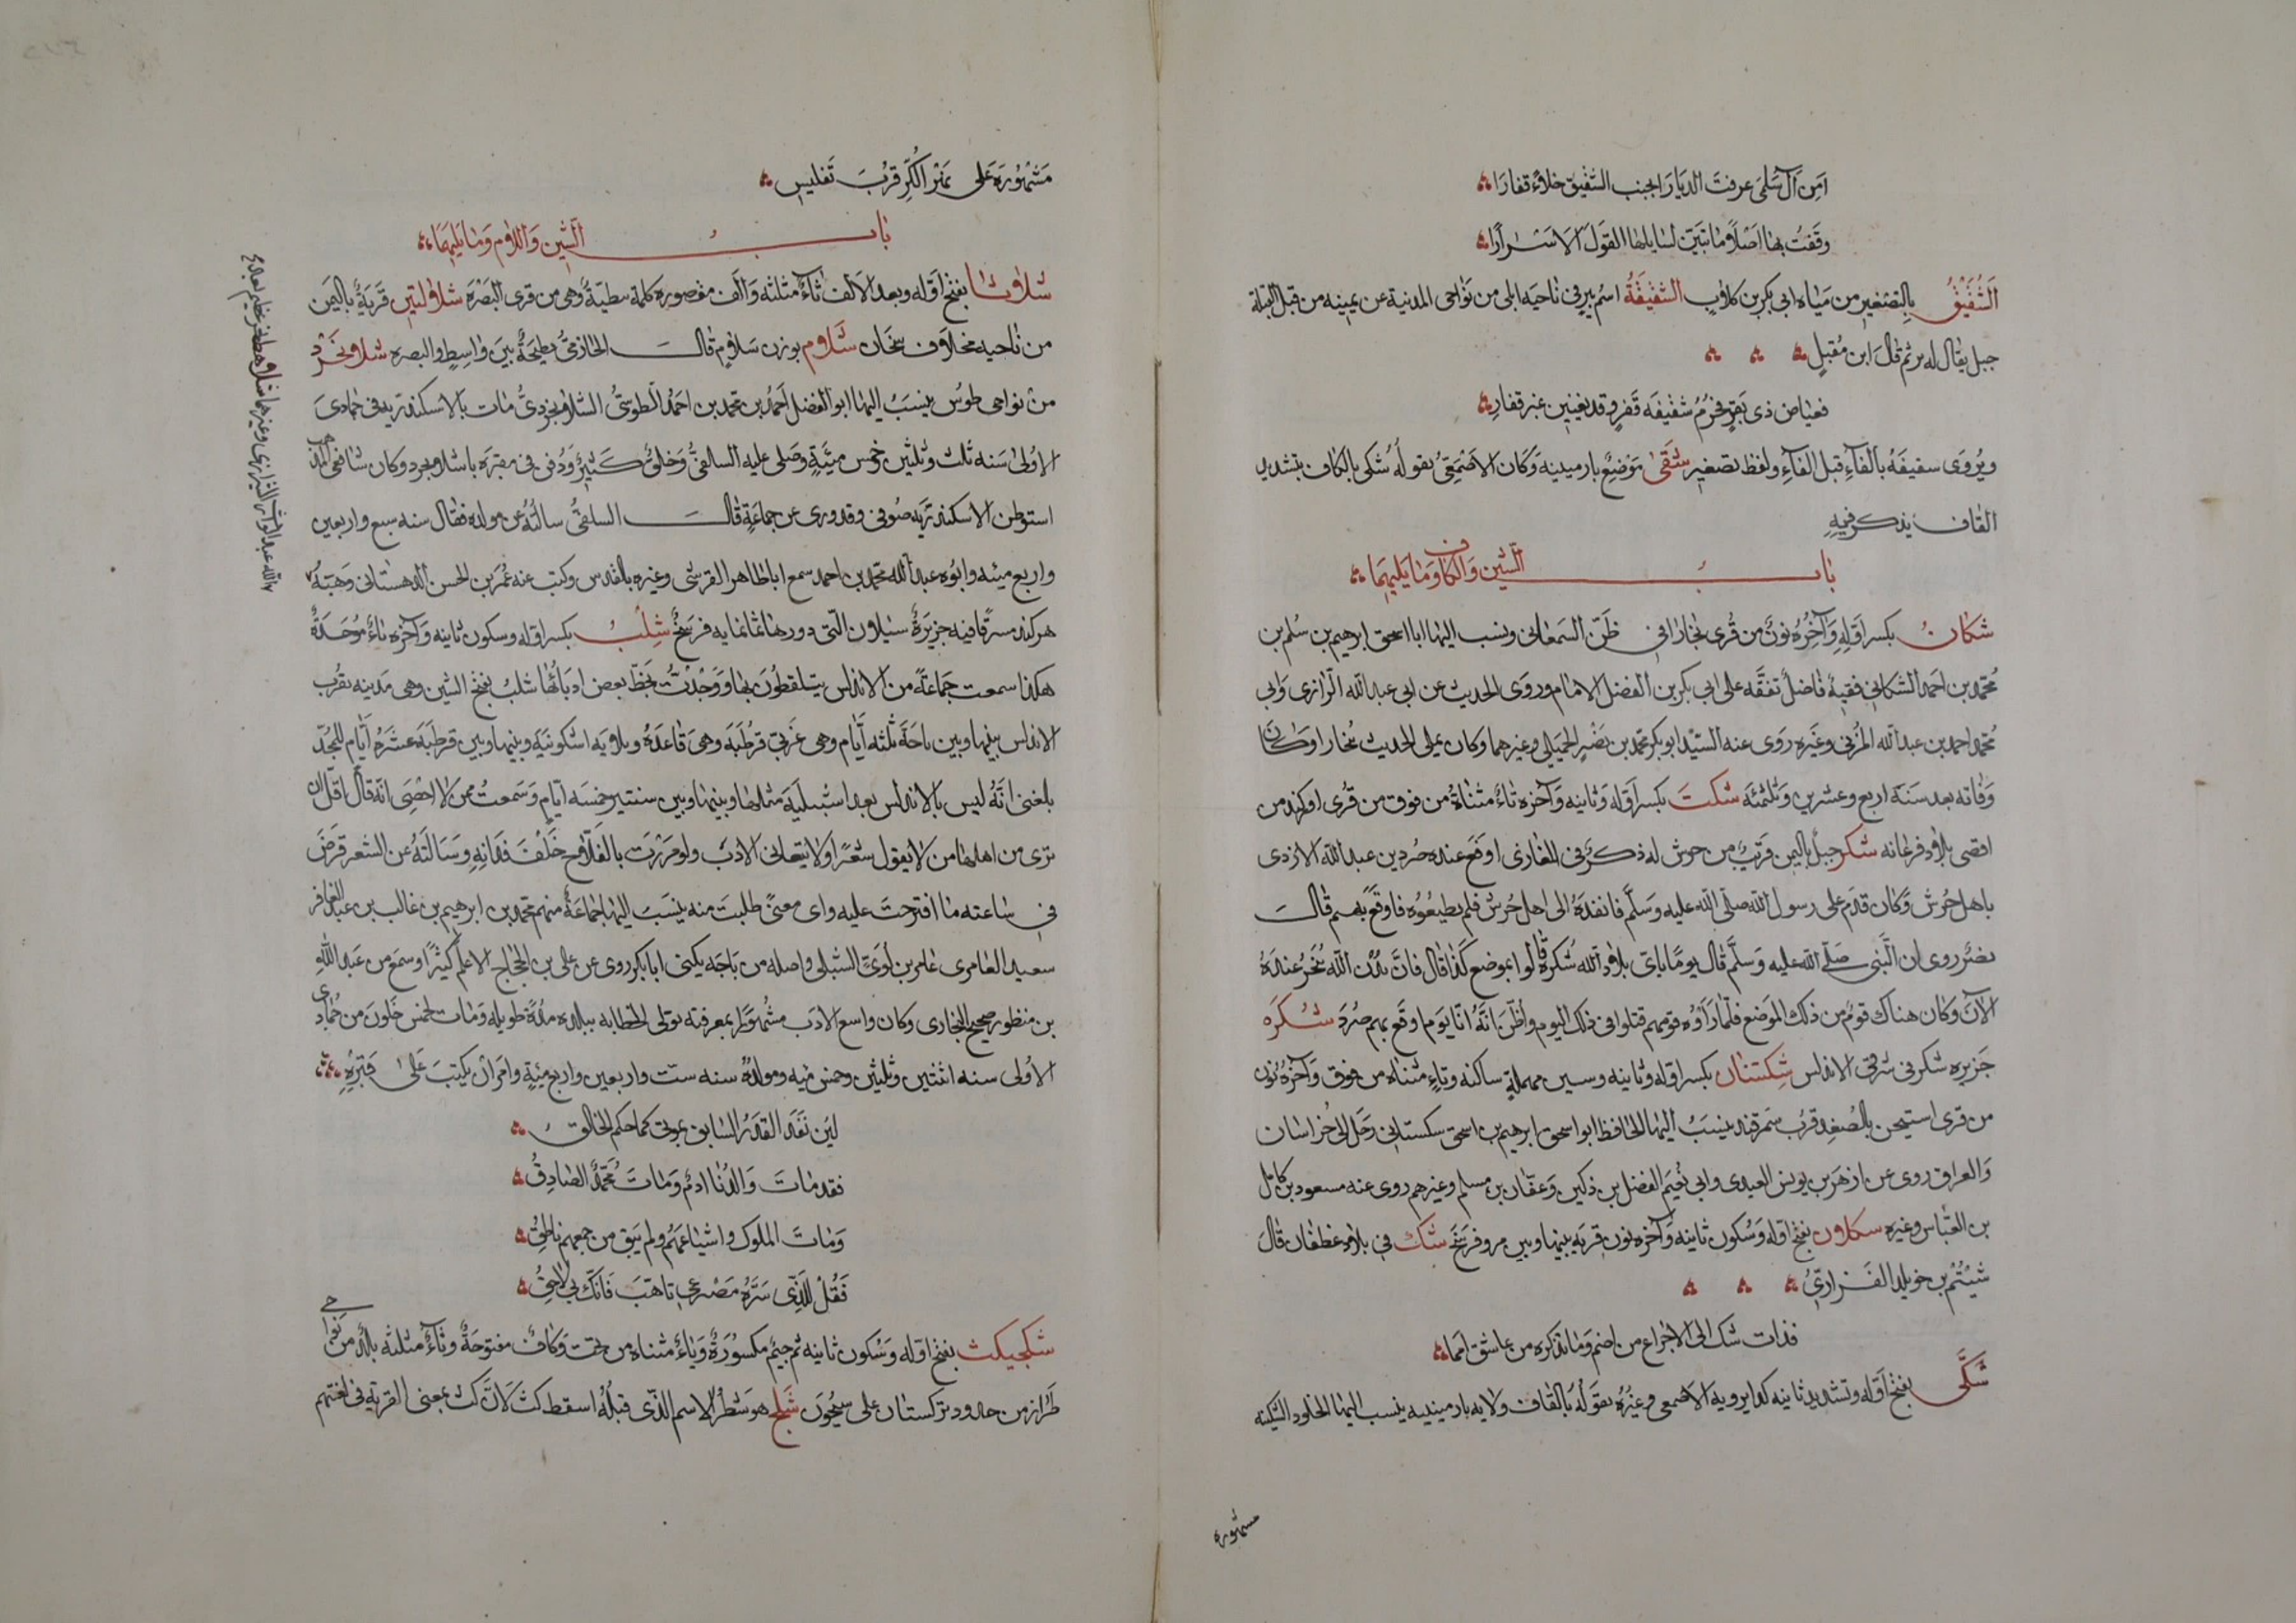 امن آل سلمى عرفت الديارا بجنب الشقيق خلاءً قفارا
وقفت بها اصلاً ما تبين لسايلها القول الا سرارا
الشُّقَيْقُ بالتصغير من مياه ابي بكر بن كلاب الشقيقة اسم بير في ناحيه ابلى من نواحى المدينة عن يمينه من قبل القبلة
جبل يقال له برثم قال ابن مقبل
فعياض ذى بقر فحزم شقيقه قفر وقد يغنين غير قفار
ويروى سفيفه بالفاء قبل الفاء ولفظ تصغير شقى موضع بارمينية وكان الاصمعى يقوله شكى بالكاف بتشديد
القاف يذكر فيه
باب الشين والكاف وما يليهما
شكان بكسر اوله وآخره نون من قرى بخارا في ظن السمعانى ونسب اليها ابا اسحق ابرهيم بن سلم بن
محمد بن احمد الشكاني فقيه فاضل تفقه على ابي بكر بن الفضل الامام وروى الحديث عن ابي عبد الله الرازى وابي
محمد احمد بن عبد الله المزنى وغيره روى عنه السيد ابو بكر محمد بن نصر الجميلى وغيرهما وكان يملى الحديث ببخارا وكان
وفاته بعد سنة اربع وعشرين وثلثمئه شكت بكسر اوله وثانيه وآخره تاء مثناة من فوق من قرى اوكند من
اقصى بلاد فرغانه شكر جبل باليمن قريب من جرش له ذكر في المغازى اوقع عنده صرد بن عبد الله الازدى
باهل جرش وكان قدم على رسول الله صلى الله عليه وسلم فانفذه الى اهل جرش فلم يطيعوه فاوقع بهم قال
نصر روى ان النبي صلى الله عليه وسلم قال يوما باى بلاد الله شكر قالوا بموضع كذا قال فان بدن الله تنحر عنده
الآن وكان هناك قوم من ذلك الموضع فلما رأوه قومهم قتلوا في ذلك اليوم واظن انه انا يوم اوقع بهم صرد شكره
جزيره شكر في شرقى الاندلس شكستان بكسر اوله وثانيه وسين مهملة ساكنه وتاء مثناه من فوق وآخره نون
من قرى استيخن بالصغد قرب سمرقند ينسب اليها الحافظ ابو اسحق ابرهيم بن اسحق سكستانى رحل الى خراسان
والعراق روى عن ازهر بن يونس العبدى وابى نعيم الفضل بن دكين وعفان بن مسلم وغيرهم روى عنه مسعود بن كامل
بن العباس وغيره سكلان بفتح اوله وسكون ثانيه وآخره نون قريه بينها وبين مرو فرسخ شك في بلاد غطفان قال
شييم بن خويلد الفزارى
فذات شك الى الاجراع من اضم وما تذكره من عاشق امما
شكّى بفتح اوله وتشديد ثانيه كذا يرويه الاصمعى وغيره يقوله بالقاف ولايه بارمينيه ينسب اليها الجلود الشكيه
مشهوره
مشهورة على نهر الكر قرب تفليس
باب الشين واللام وما يليهما
شلاثا بفتح اوله وبعد الالف ثاء مثلثه والف مقصوره كلمة نبطية وهي من قرى البصره شلالتين قرية باليمن
من ناحيه مخلاف سنحان شلام بوزن سلام قال الحازمي بطيحة بين واسط والبصره شلانجرد
من نواحى طوس ينسب اليها ابو الفضل احمد بن محمد بن احمد الطوسى الشلانجردى مات بالاسكندريه في جمادى
الاولى سنه ثلث وثلثين وخمس ميئة وصلى عليه السلفى وخلق كثير ودفن في مقبرة باشلانجرد وكان شافعى المذهب
استوطن الاسكندرية صوفى وقد روى عن جماعة قال السلفى سالته عن مولده فقال سنه سبع واربعين
واربع ميئه وابوه عبد الله محمد بن احمد سمع ابا طاهر القرشى وغيره بالقدس وكتب عنه عمر بن الحسن الدهستانى وهبة
هركند مسرقا فيه جزيرة سيلان التى دورها ثمانمايه فرسخ شلب بكسر اوله وسكون ثانيه وآخره باء موحدة
هكذا سمعت جماعة من الاندلس يتلفظون بها ووجدت بخط بعض ادبائها شلب بفتح الشين وهى مدينه بقرب
الاندلس بينها وبين باجة ثلثه ايام وهى غربى قرطبه وهى قاعدة ولايه اشكونيه وبينها وبين قرطبه عشره ايام للمجد
بلغنى انه ليس بالاندلس بعد اشبيليه مثلها وبينها وبين شنترين خمسه ايام وسمعت ممن لا احصى انه قال اقل ان
ترى من اهلها من لا يقول شعرا ولا يتعانى الادب ولو مررت بالفلاح خلف فدانه وسالته عن الشعر قرض
في ساعته ما اقترحت عليه واى معنى طلبت منه ينسب اليها جماعة منهم محمد بن ابرهيم بن غالب بن عبد الغافر
سعيد العامرى عامر بن لوى الشبلى واصله من باجه يكنى ابا بكر روى عن على بن الحجاج الاعلم كثيرا وسمع من عبد الله
بن منظور صحيح البخارى وكان واسع الادب مشهورا بمعرفته تولى الخطابه ببلده مدة طويله ومات لخمس خلون من جمادى
الاولى سنه اثنتين وثلثين وخمس ميه ومولده سنه ست واربعين واربع ميئة وامر ان يكتب على قبره
لين نفد القدر السابق بموتى كما حكم الخالق
فقد مات والدنا ادم ومات محمد الصادق
ومات الملوك واشياعهم ولم يبق من جمعهم ناطق
فقل للذى سره مصرعى تاهب فانك بى لاحق
شلجيكث بفتح اوله وسكون ثانيه ثم جيم مكسورة وياء مثناه من تحت وكاف مفتوحة وثاء مثلثه بلد من نواحى
طراز من حدود تركستان على سيحون شلج هو شطر الاسم الذى قبله اسقط كث لان كث بمعنى القريه في لغتهم